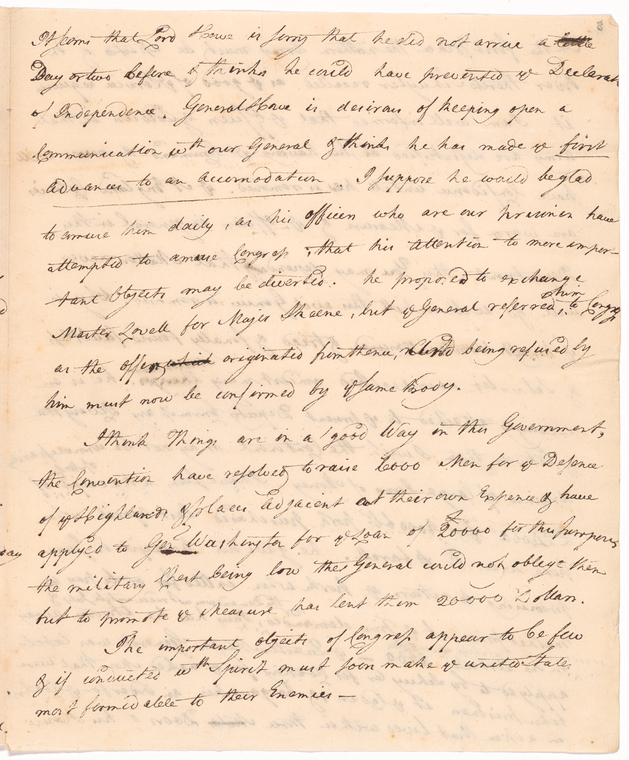 It seems that Lord Howe is sorry that he did not arrive a little
Day or two before & thinks he could have prevented ye Declarat
of Independence. General Howe is desirous of keeping open a
Communication wth our General & thinks he has made ye first
advances to an accomodation. I suppose he would be glad
to amuse him daily, as his officers who are our prisoners have
attempted to amuse Congress, that his attention to more impor-
tant Objects may be diverted. he proposed to exchange
Master Lovell for Major Skeene, but ye General referred him to Congress
as the offer which originated from thence, And being refused by
him must now be confirmed by ye same Body.
I think Things are in a good Way in this Government,
the Convention have resolved to raise 6000 Men for ye Defence
of ye Highlands & places adjacent at their own Expence & have
applyed to Gen Washington for ye Loan of £20000 for this purpose,
the military Chest being low the General could not oblige them
but to promote ye measure has lent them 20000 Dollars.
The important objects of Congress appear to be few
& if conducted wth Spirit must soon make ye united States
most formidable to their Enemies —